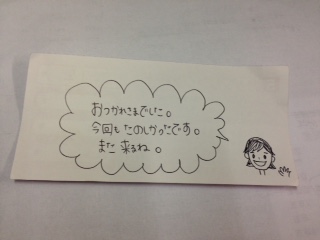 おつかれさまでした。
今回も たのしかったです。
また 来るね。